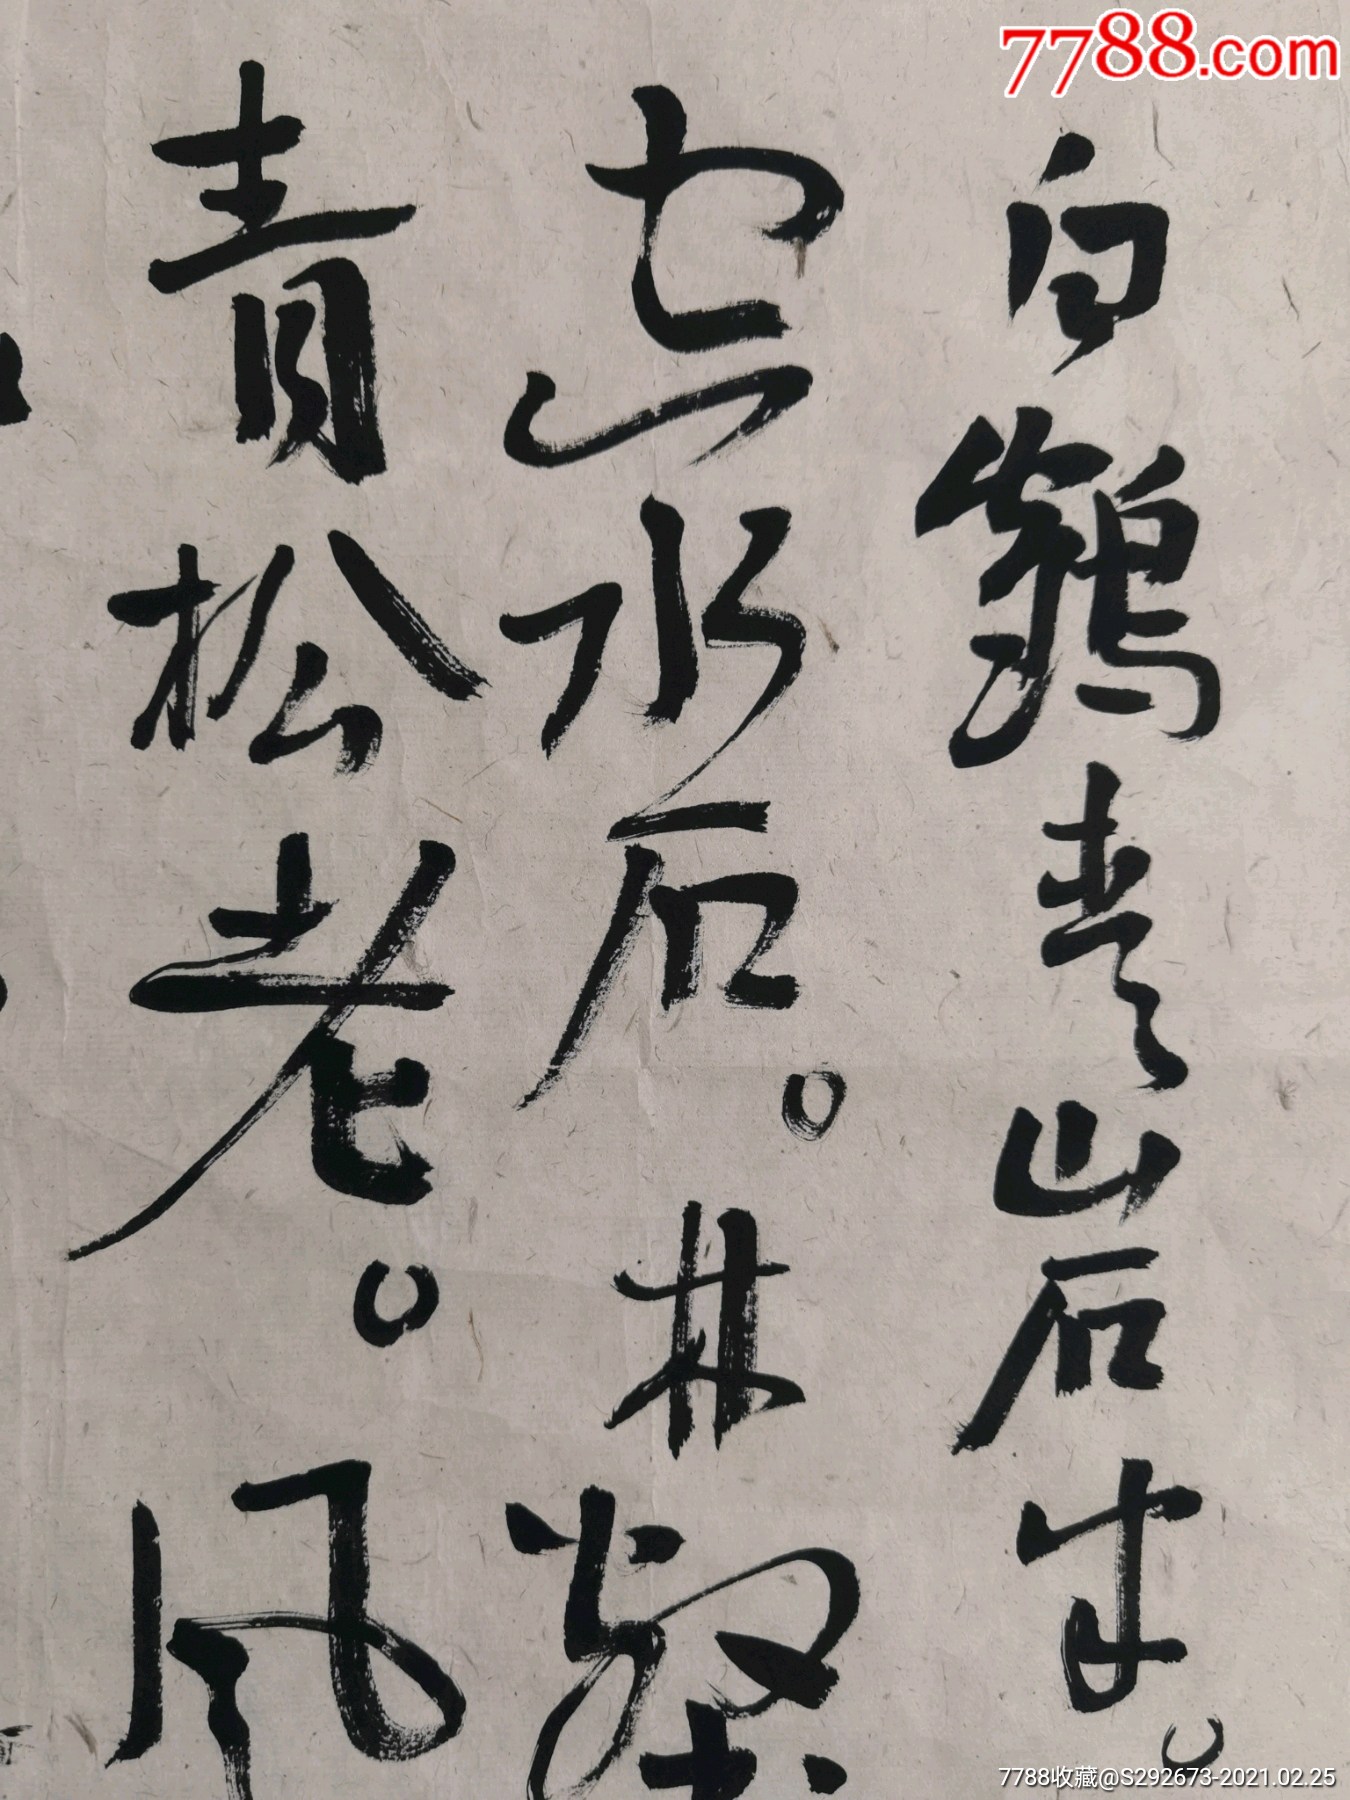 7788.com
白鶴青岩半。
空水石。林壑
青松老。风
7788收藏@S292673-2021.02.25